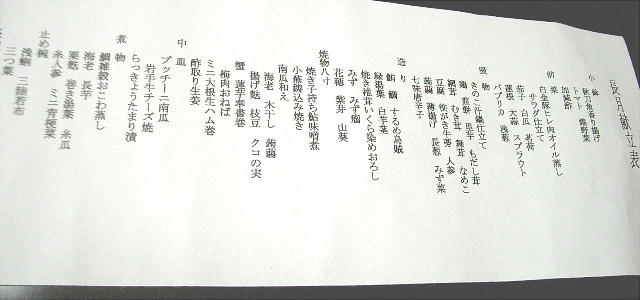 小鉢
秋刀魚香り揚げ
トマト 錦野菜
加減酢
前菜
白金豚ヒレ肉オイル蒸し
サラダ仕立て
茄子 白瓜 茗荷
蓮根 大蒜 スプラウト
パプリカ 浅葱
煎餅 里芋 もだし茸
鶏 なめこ
鯛茸 むき茸 舞茸 人参
豆腐 笹がき牛蒡
蒟蒻 薄揚げ 長葱 みず菜
七味唐辛子
造り
鮪 鯛 するめ烏賊
緑湯葉 白芋茎
焼き椎茸いくら染めおろし
みず みず瘤
花穂 紫芽 山葵
焼物八寸
焼き子持ち鮎味噌煮
小蕪鋳込み焼き
南瓜和え
海老 木干し 蒟蒻
揚げ麩 枝豆 クコの実
蟹 蓮芋奉書巻
梅肉おねば
ミニ大根生ハム巻
酢取り生姜
中皿
プッチーニ南瓜
岩手牛チーズ焼
らっきょうたまり漬
煮物
鯛雑穀おこわ蒸し
海老 長芋
粟麩 巻き湯葉 糸瓜
糸人参 ミニ青梗菜
止め椀
浅蜊 三陸若布
三つ葉